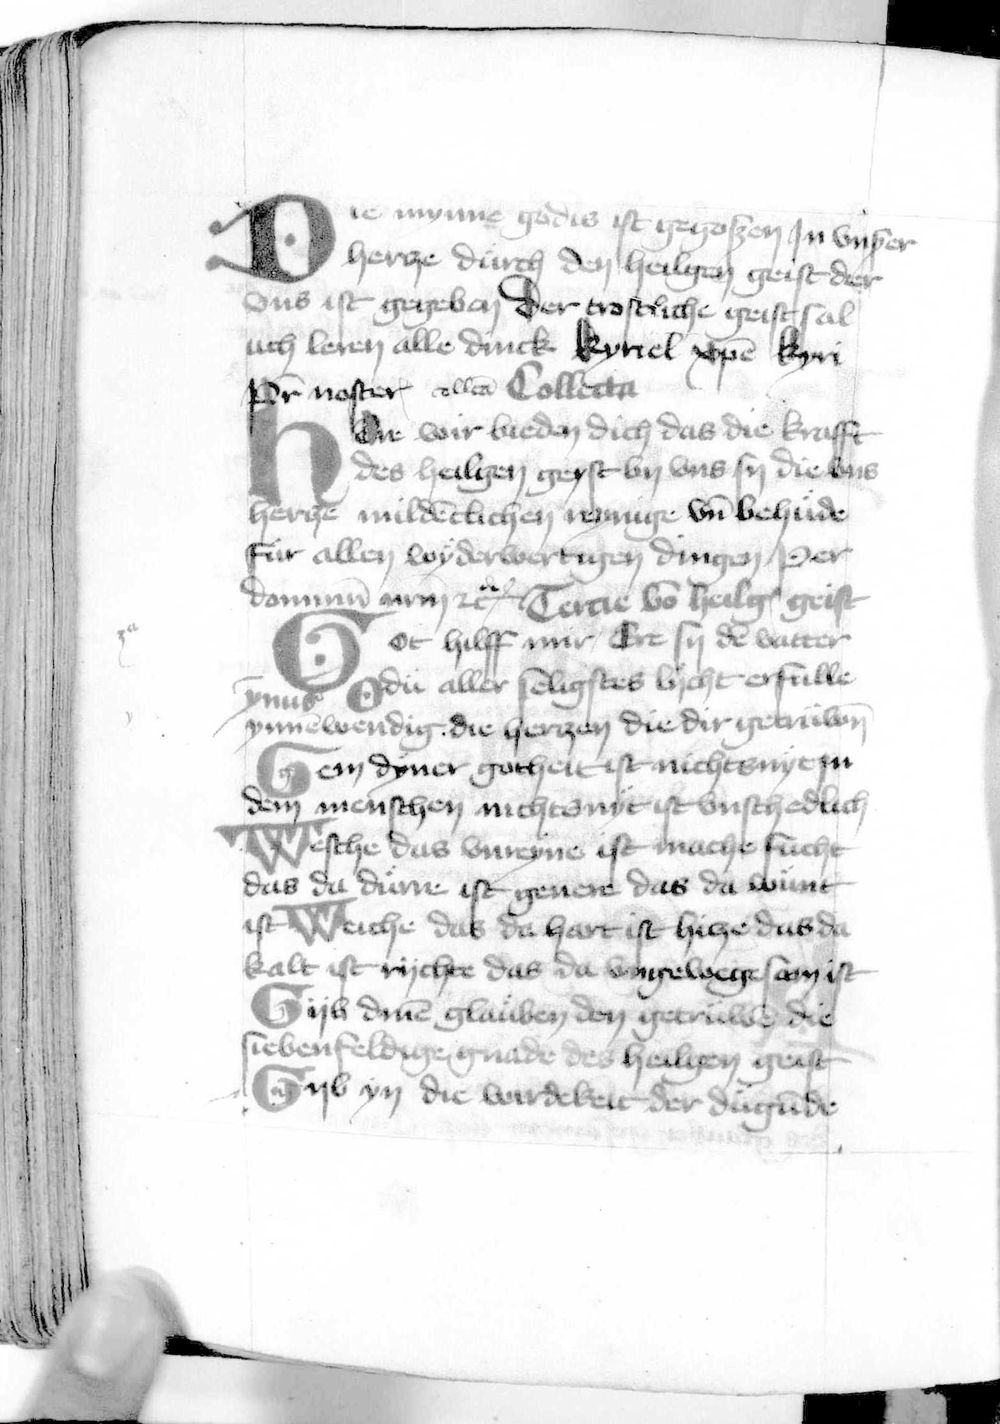 Die mynne godis ist gegoszen In vnser
hercze dürch den heilgen geist der
vns ist gegeben Der trostliche geist sal
uch leren alle dinck Kyriel xpē kyri
Pr̄ noster Collecta
HEre wir bieden dich das die krafft
des heilgen geist by vns sy die vns
hercze mildēclichen reynige vn̄ behüde
für allen wyderwertigen dingen Per
dominū nr̄m Tercie vō heilgˀ geist
GOt hilff mir Ere sy dē vatter
ymnus O dü aller seligstes lycht erfulle
ynnēwendig die herzen die dir getrüwē
Gein dyner gotheit ist nichtsnyt in
dem menschen nichtsnyt ist vnschedlich
Wesche das vnreyne ist mache fucht
das da dürre ist genere das da wünt
ist Weiche das da hart ist hicze das da
kalt ist rijchte das da vngewegesam ist
Gijb dinē glaüben den getrüwē die
siebenfeldige gnade des heilgen geist
Gijb yn die wirdekeit der dügūde